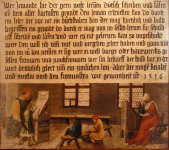 Wer jemandt hie der gern welt lernen dütsch schriben und läsen
us dem aller kurtzisten grundt den jeman erdencken kan do durch
ein jeder der vor nit ein buchstaben kan der mag kürtzlich und bald
begriffen ein grundt do durch er mag von jm selbs lernen sin schuld
uff schriben und läsen und wer es nit gelernen kan so ungeschickt
were den will ich um nüt und vergeben glert haben und gantz nüt
von jm zu lon nemen er sig wer er well burger oder handtwercks ge
sellen frouwen und junckfrouwen wer sin bedarff der kum har jn der
wirt drüwlich glert um ein zimlichen lon aber die jungen knaben
und meitlin noch den fronvasten wie gewonheit ist 1516